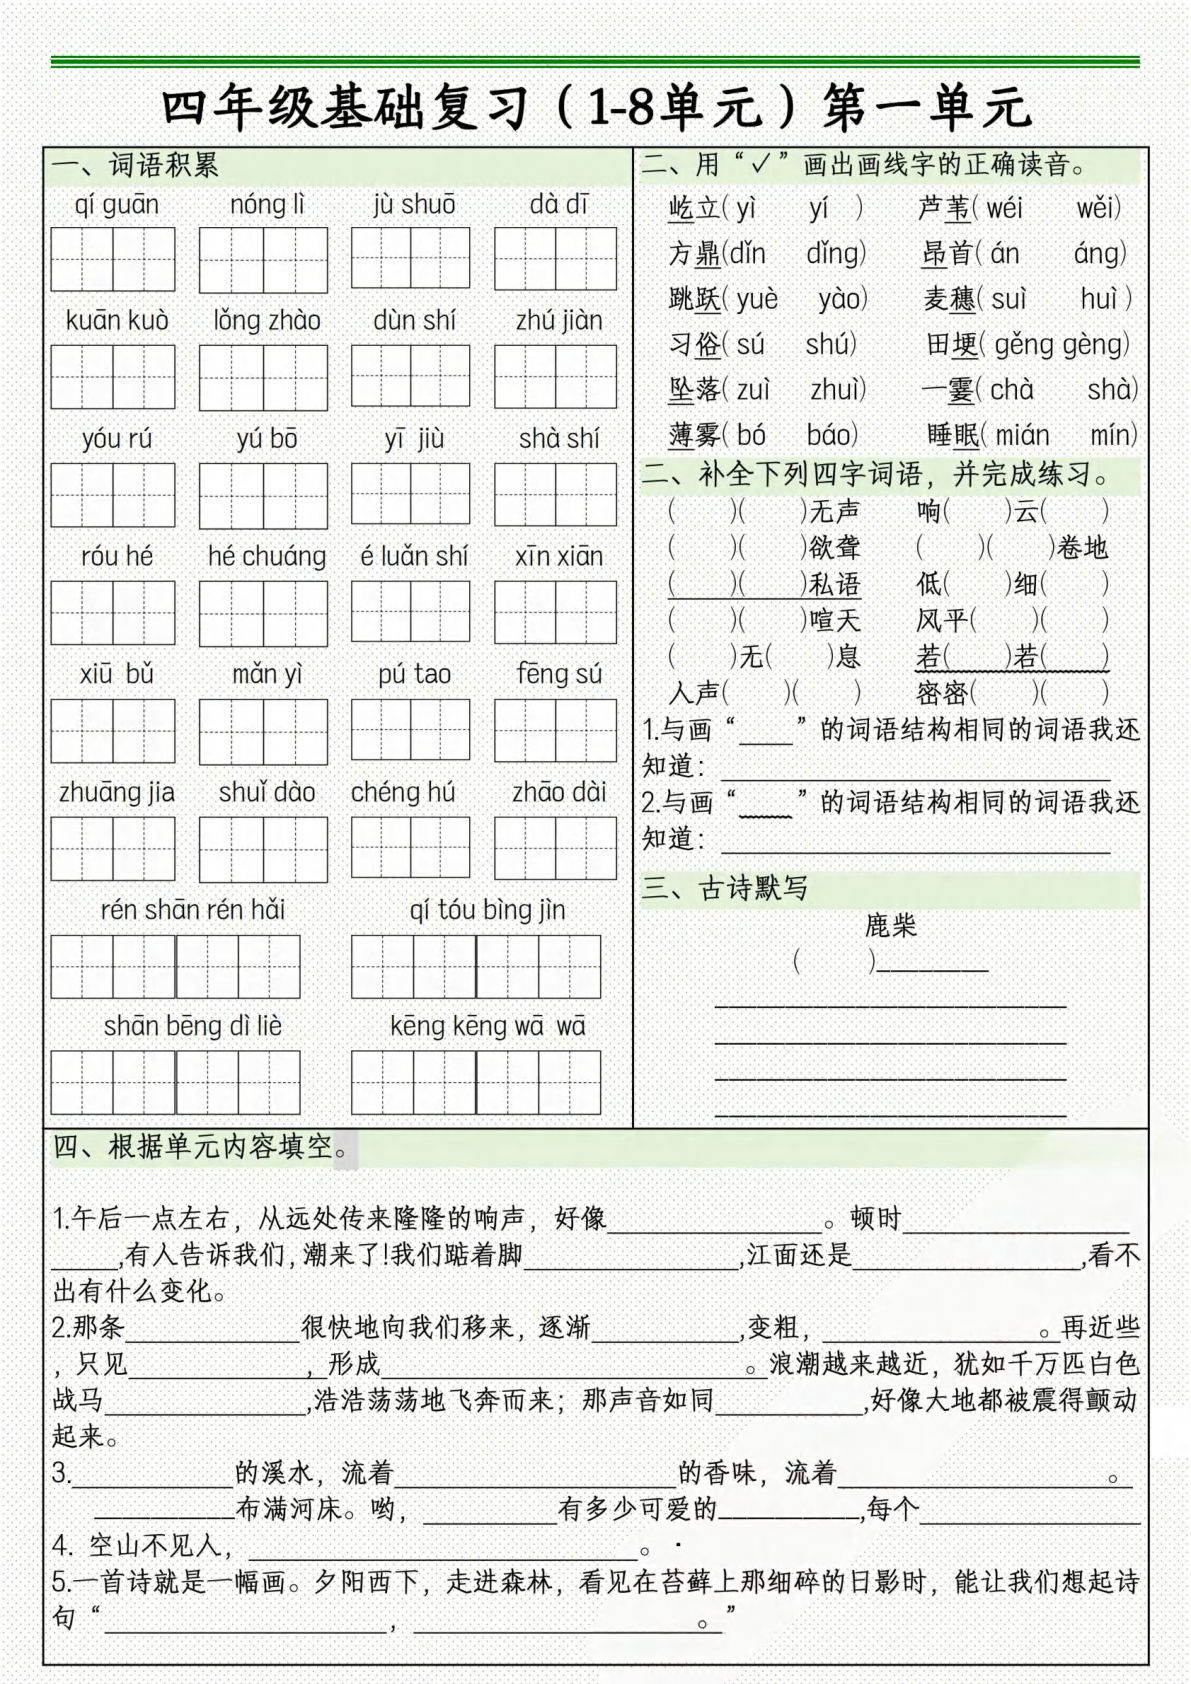 四年级基础复习（1-8单元）第一单元
一、词语积累
qí guān nóng lì jù shuō dà dī
kuān kuò lǒng zhào dùn shí zhú jiàn
yóu rú yú bō yī jiù shà shí
róu hé hé chuáng é luǎn shí xīn xiān
xiū bǔ mǎn yì pú tao fēng sú
zhuāng jia shuǐ dào chéng hú zhāo dài
rén shān rén hǎi qí tóu bìng jìn
shān bēng dì liè kēng kēng wā wā
二、用“✓”画出画线字的正确读音。
屹立( yì yí ) 芦苇( wéi wěi)
方鼎(dǐn dǐng) 昂首( án áng)
跳跃( yuè yào) 麦穗( suì huì )
习俗( sú shú) 田埂( gěng gèng)
坠落( zuì zhuì) 一霎( chà shà)
薄雾( bó báo) 睡眠( mián mín)
二、补全下列四字词语，并完成练习。
( )( )无声 响( )云( )
( )( )欲聋 ( )( )卷地
( )( )私语 低( )细( )
( )( )喧天 风平( )( )
( )无( )息 若( )若( )
人声( )( ) 密密( )( )
1.与画“____”的词语结构相同的词语我还
知道：____________________
2.与画“____”的词语结构相同的词语我还
知道：____________________
三、古诗默写
鹿柴
( )________
四、根据单元内容填空。
1.午后一点左右，从远处传来隆隆的响声，好像________________。顿时________________
_____,有人告诉我们,潮来了!我们踮着脚________________,江面还是________________,看不
出有什么变化。
2.那条____________很快地向我们移来，逐渐__________,变粗，________________。再近些
，只见____________，形成__________________________。浪潮越来越近，犹如千万匹白色
战马______________,浩浩荡荡地飞奔而来；那声音如同__________,好像大地都被震得颤动
起来。
3.____________的溪水，流着____________________的香味，流着____________________。
__________布满河床。哟，__________有多少可爱的__________,每个________________
4. 空山不见人，____________________________。
5.一首诗就是一幅画。夕阳西下，走进森林，看见在苔藓上那细碎的日影时，能让我们想起诗
句“____________________，____________________。”